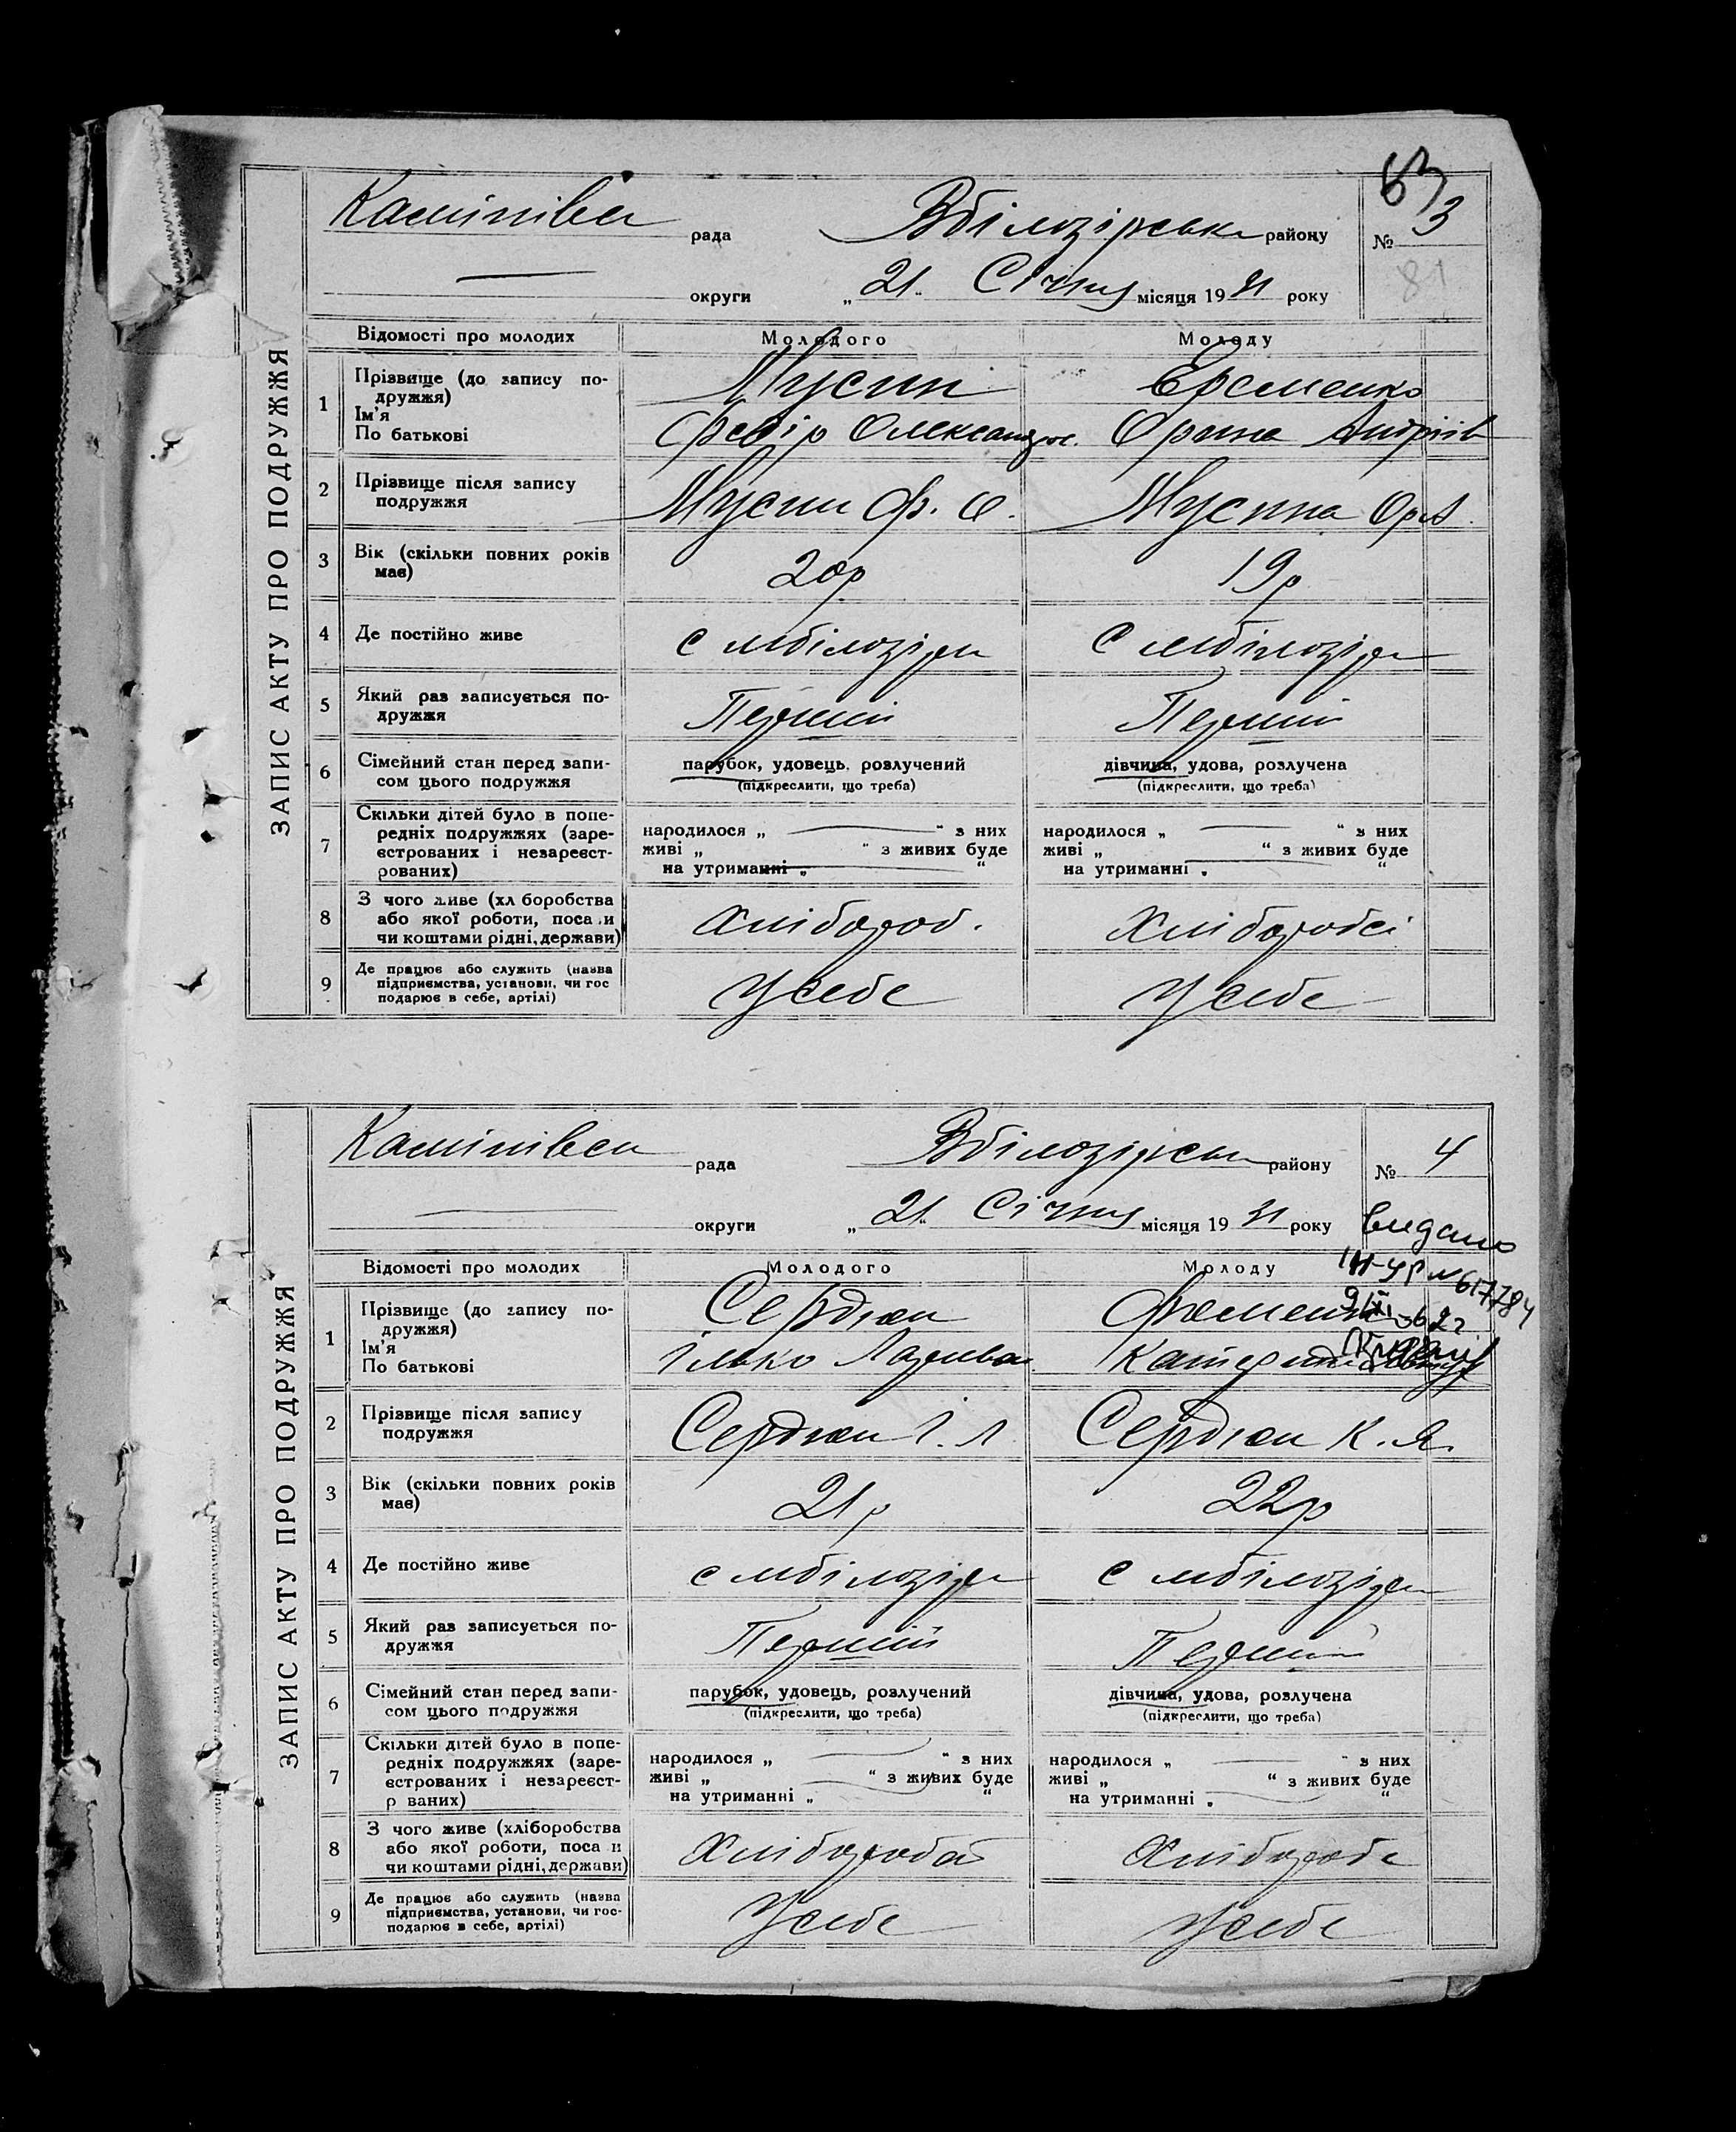 63
рада Вбілозірськ району № 3
81
округи „ 21 “ Січня місяця 19 31 року
ЗАПИС АКТУ ПРО ПОДРУЖЖЯ
Відомості про молодих Молодого Молоду
1 Прізвище (до запису по-
дружжя)
Мусин Єременко
Ім'я
По батькові
Федір Олександр. Орина Андріїв
2 Прізвище після запису
подружжя
Мусин Ф. О. Мусина Ор.А.
3 Вік (скільки повних років
має)
20р 19р
4 Де постійно живе с мбілозірка с мбілозірка
5 Який раз записується по-
дружжя
Перший Перший
6 Сімейний стан перед запи-
сом цього подружжя
парубок, удовець, розлучений дівчина, удова, розлучена
(підкреслити, що треба) (підкреслити, що треба)
7 Скільки дітей було в попе-
редніх подружжях (заре-
єстрованих і незареєст-
рованих)
народилося „ “ з них народилося „ “ з них
живі „ “ з живих буде живі „ “ з живих буде
на утриманні „ “ на утриманні „ “
8 З чого живе (хл боробства
або якої роботи, поса и
чи коштами рідні, держави)
хлібороб. Хлібороб
9 Де працює або служить (назва
підприємства, установи, чи гос
подарює в себе, артілі)
У себе У себе
рада Вбілозірськ району № 4
округи „ 21 “ Січня місяця 19 31 року
видано
617784
ЗАПИС АКТУ ПРО ПОДРУЖЖЯ
Відомості про молодих Молодого Молоду
1 Прізвище (до запису по-
дружжя)
Сердюк
Ім'я
По батькові
Ілько Катерина
2 Прізвище після запису
подружжя
Сердюк І. Л Сердюк К. Я.
3 Вік (скільки повних років
має)
21р 22р
4 Де постійно живе с мбілозірка с мбілозірка
5 Який раз записується по-
дружжя
Перший Перший
6 Сімейний стан перед запи-
сом цього подружжя
парубок, удовець, розлучений дівчина, удова, розлучена
(підкреслити, що треба) (підкреслити, що треба)
7 Скільки дітей було в попе-
редніх подружжях (заре-
єстрованих і незареєст-
р ваних)
народилося „ “ з них народилося „ “ з них
живі „ “ з живих буде живі „ “ з живих буде
на утриманні „ “ на утриманні „ “
8 З чого живе (хліборобства
або якої роботи, поса и
чи коштами рідні, держави)
Хлібороб Хлібороб
9 Де працює або служить (назва
підприємства, установи, чи гос-
подарює в себе, артілі)
У себе У себе